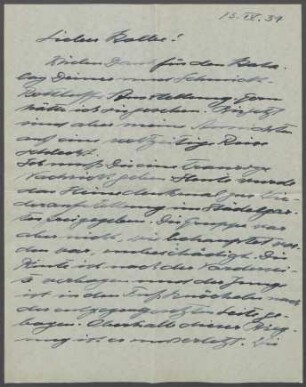 13. IX. 39
Lieber Kolbe!
Vielen Dank für den Kata-
log Deiner und Schmidt-
Rottluffs Ausstellung. Gern
hätte ich sie gesehen. Bis jetzt
sind aber meine Aussichten
auf eine                Reise
schlecht.
Ich muß Dir eine traurige
Nachricht geben. Heute wurde
das Heinedenkmal zur Wie-
deraufstellung im Städelgar-
ten freigegeben. Die Gruppe war
aber nicht, wie behauptet wor-
den war, unbeschädigt. Die
                ist nach der
            verbogen und der Junge
ist in den Fußknöcheln nach
der entgegengesetzten Seite ge-
bogen. Oberhalb dieser Bieg-
ung ist er                Die